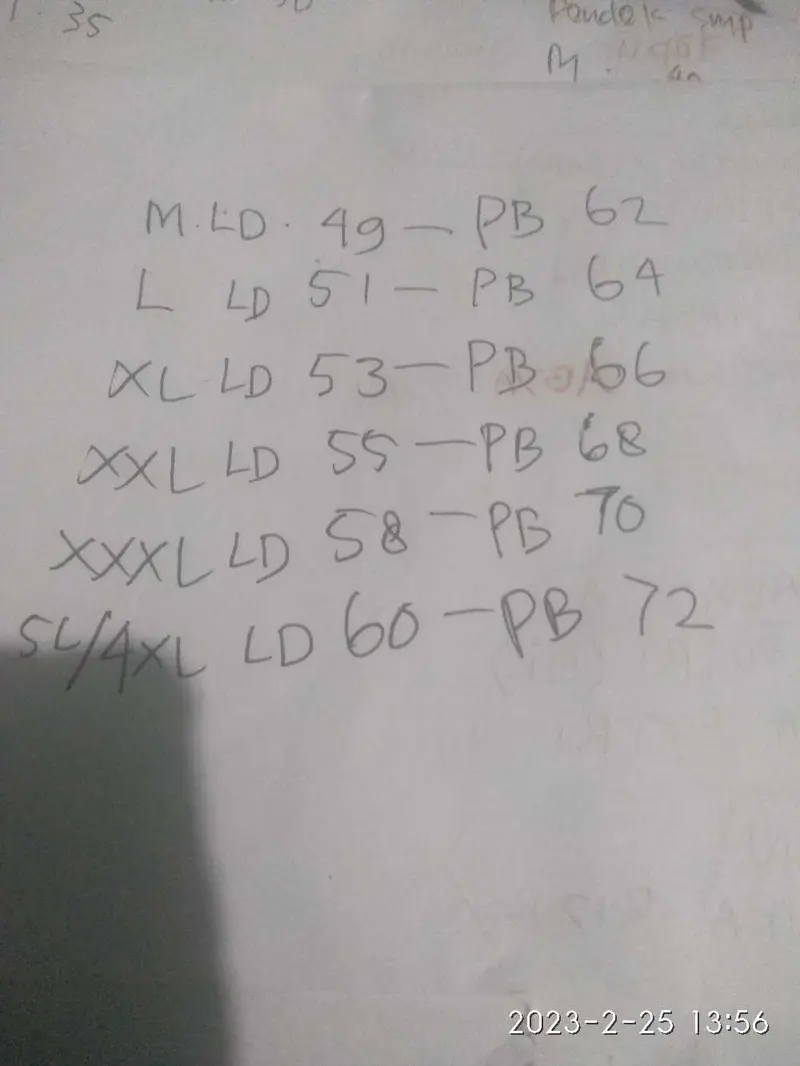 35
Pendek smp
M.
M.LD. 49 — PB 62
L LD 51 — PB 64
XL LD 53 — PB 66
XXL LD 55 — PB 68
XXXL LD 58 — PB 70
5L/4XL LD 60 — PB 72
2023-2-25 13:56